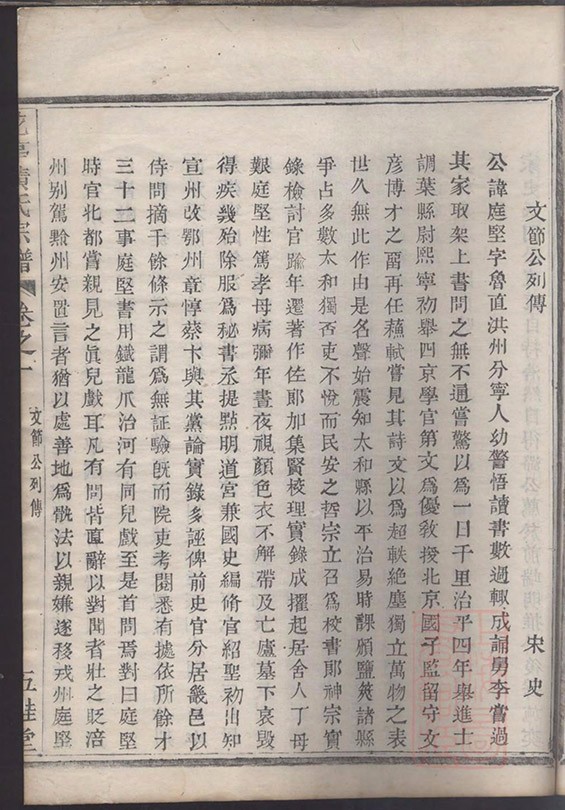 文節公列傳 宋史
公諱庭堅字魯直洪州分寧人幼警悟讀書數過輒成誦舅李嘗過
其家取架上書問之無不通嘗驚以為一日千里治平四年舉進士
調葉縣尉熙寧初舉四京學官第文爲優敎授北京國子監留守文
彥博才之畱再任蘓軾嘗見其詩文以爲超軼絶塵獨立萬物之表
世久無此作由是名聲始震知太和縣以平治易時課頒鹽筴諸縣
爭占多數太和獨否吏不悅而民安之哲宗立召爲校書郎神宗實
錄檢討官踰年遷著作佐郎加集賢校理實錄成擢起居舍人丁母
艱庭堅性篤孝母病彌年晝夜視顏色衣不解帶及亡廬墓下哀毀
得疾幾殆除服爲秘書丞提點明道宮兼國史編修官紹聖初出知
宣州改鄂州章惇蔡卞與其黨論實錄多誣俾前史官分居畿邑以
待問摘千餘條示之謂爲無証驗旣而院吏考閱悉有據依所餘才
三十二事庭堅書用鐵龍爪治河有同兒戲至是首問焉對曰庭堅
時官北都嘗親見之眞兒戲耳凡有問皆直辭以對聞者壯之貶涪
州别駕黔州安置言者猶以處善地爲骫法以親嫌遂移戎州庭堅
氏宗譜 卷之一 文節公列傳 五桂堂